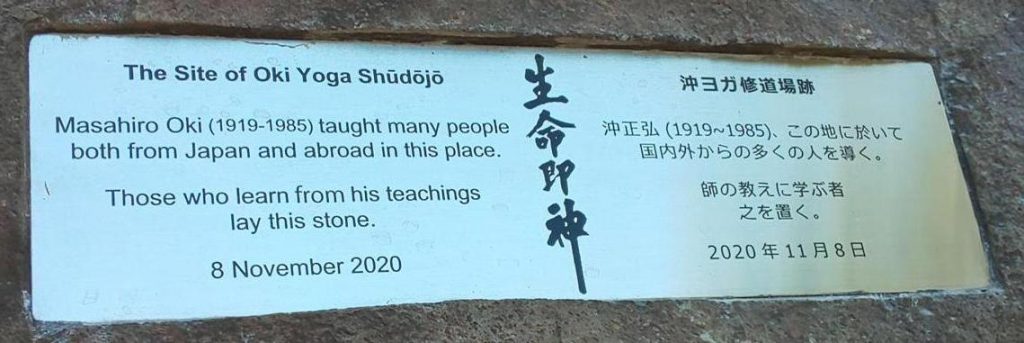 The Site of Oki Yoga Shūdōjō
Masahiro Oki (1919-1985) taught many people
both from Japan and abroad in this place.
Those who learn from his teachings
lay this stone.
8 November 2020
生命即神
沖ヨガ修道場跡
沖正弘 (1919~1985)、この地に於いて
国内外からの多くの人を導く。
師の教えに学ぶ者
之を置く。
2020年11月8日